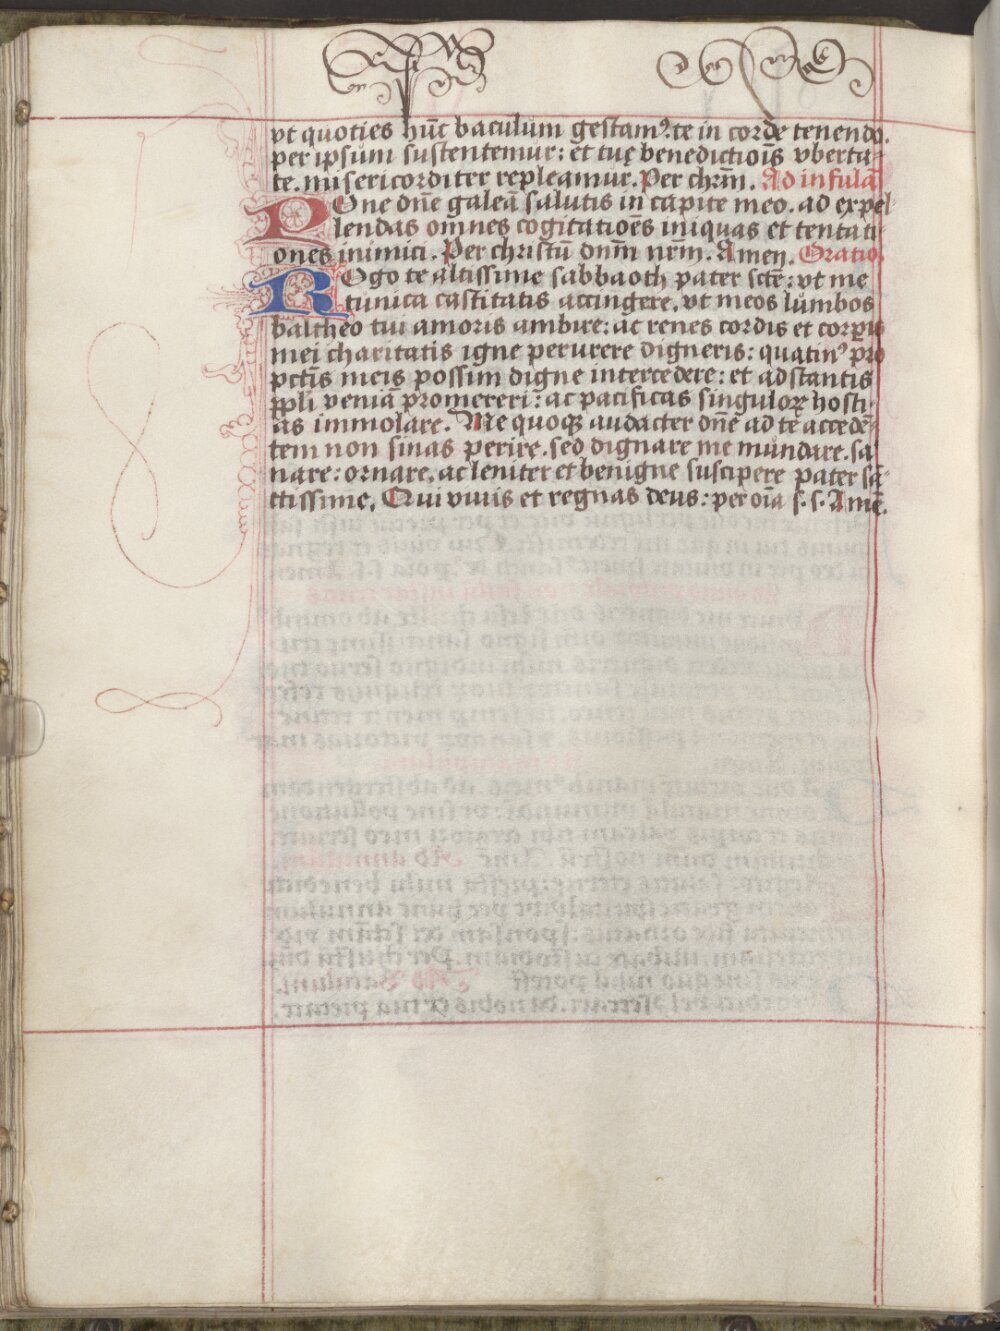 vt quoties hūc baculum gestamꝰ. te in corde tenendo.
per ipsum sustentemur: et tuę benedictiōis vberta-
te. misericorditer repleamur. Per chrm̄. Ad infulā
POne dn̄e galeā salutis in capite meo. ad expel-
lendas om̄nes cogitatiōes iniquas et tentati-
ones inimici. Per christū dnm̄ nrm̄. Amen. Oratio.
ROgo te altissime sabbaoth pater sctē: vt me
tunica castitatis accingere. vt meos lumbos
baltheo tui amoris ambire: ac renes cordis et corpis
mei charitatis igne perurere digneris: quatinꝰ pro
pctīs meis possim digne intercedere: et adstantis
ppli veniā promereri: ac pacificas singuloꝝ hosti-
as immolare. Me quoqꝫ audacter dn̄e ad te accedē-
tem non sinas perire. sed dignare me mundare. sa-
nare: ornare. ac leniter et benigne suscipere pater sā-
ctissime. Qui viuis et regnas deus: per oīa s. s. Amē.